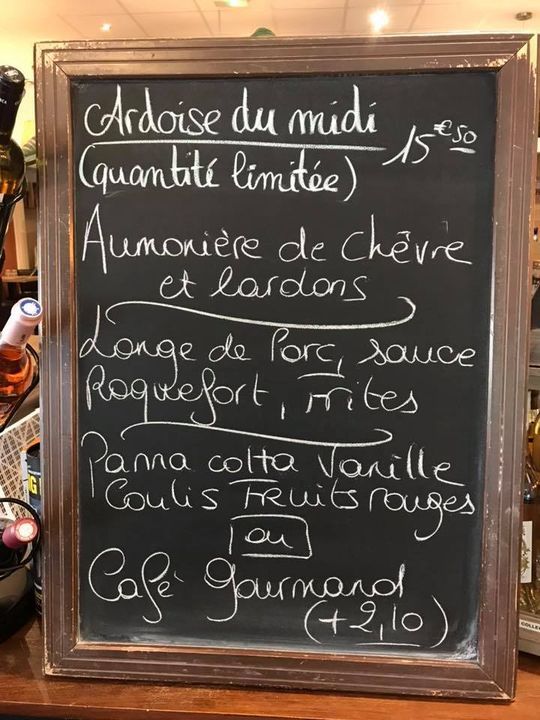 Ardoise du midi
15€50
(quantité limitée)
Aumonière de Chèvre
et lardons
Longe de Porc, sauce
Roquefort, frites
Panna cotta Vanille
Coulis Fruits rouges
ou
Café Gourmand
(+2,10)
COLLE